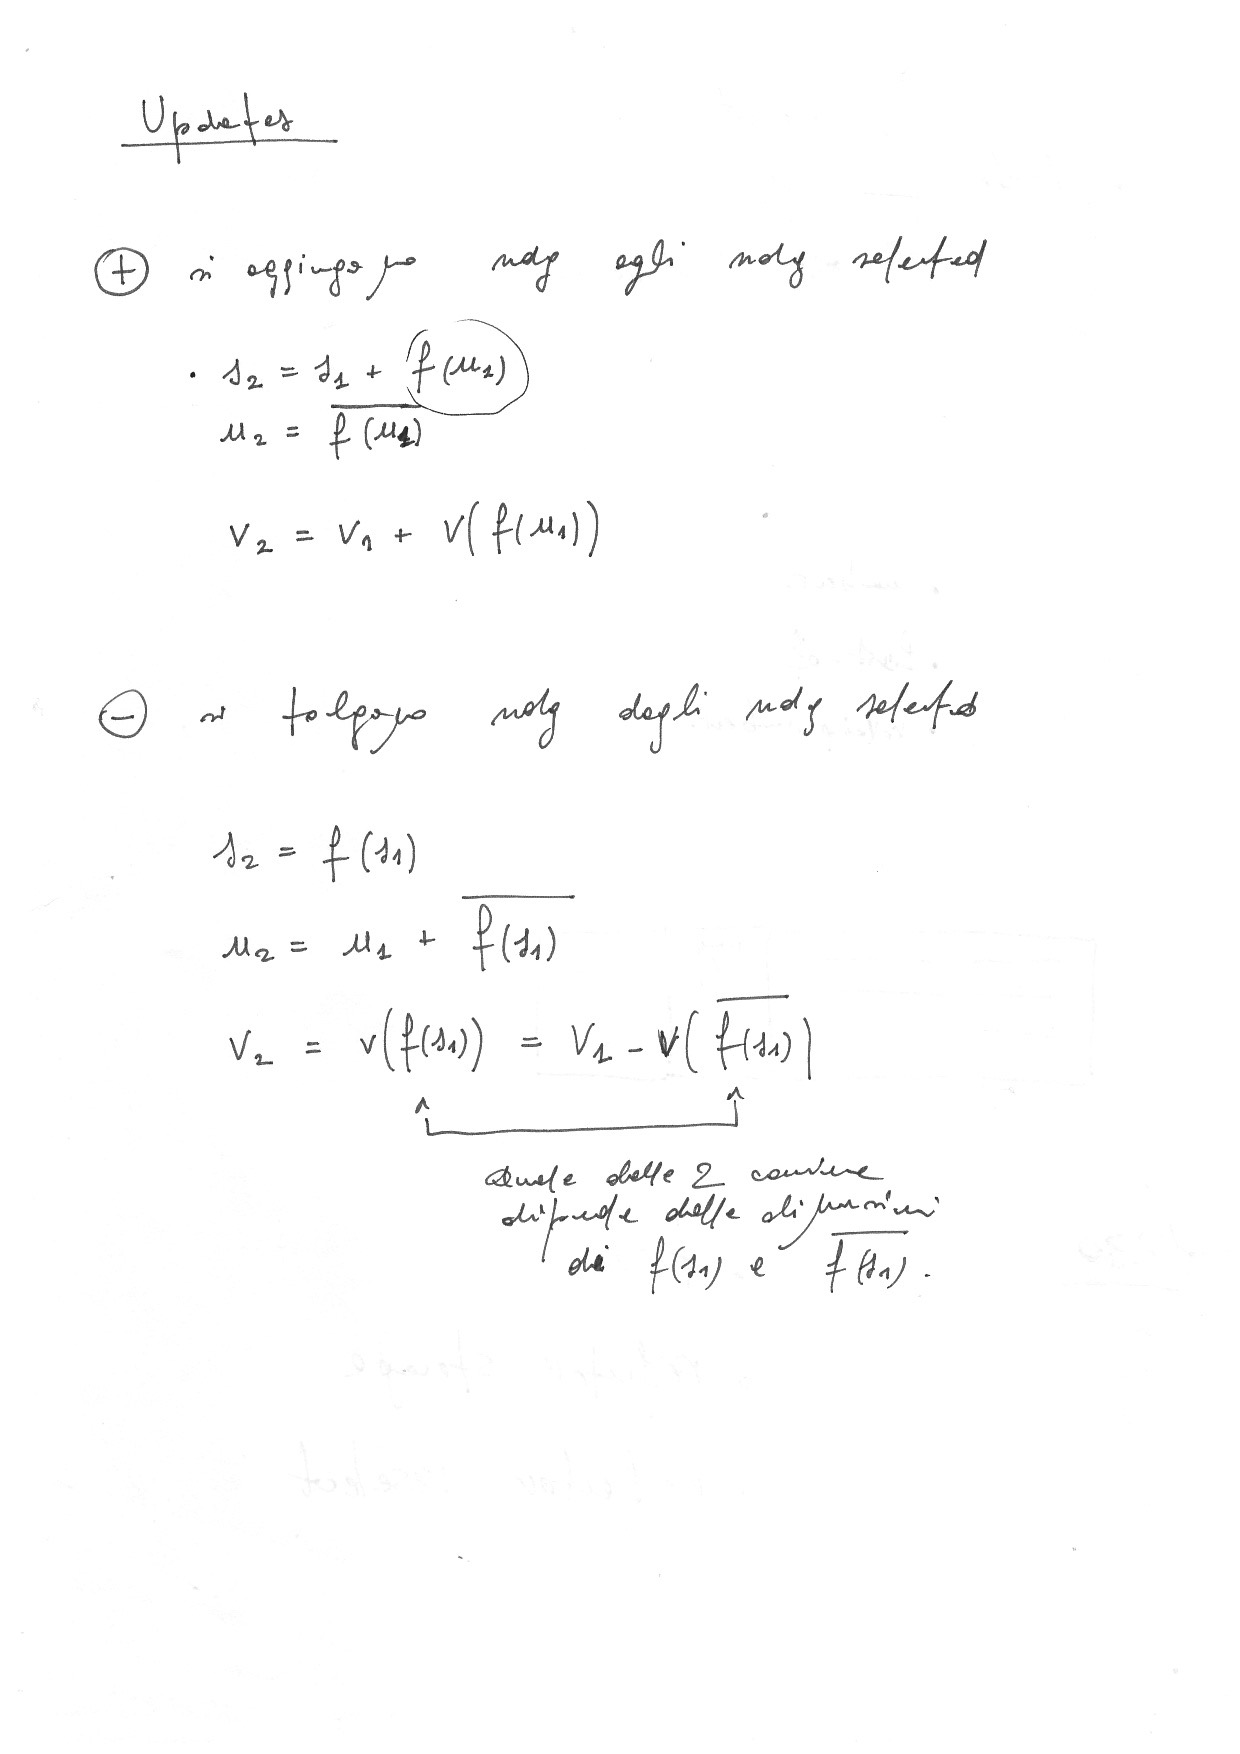 Updates
⊕ si aggiungono ndg agli ndg selected
· s₂ = s₁ + f(u₁)
u₂ = \overline{f(u₁)}
V₂ = V₁ + V(f(u₁))
⊖ si tolgono ndg dagli ndg selected
s₂ = f(s₁)
u₂ = u₁ + \overline{f(s₁)}
V₂ = V(f(s₁)) = V₁ - V(\overline{f(s₁)})
Quale delle 2 conviene
dipende dalle dimensioni
di f(s₁) e \overline{f(s₁)}.